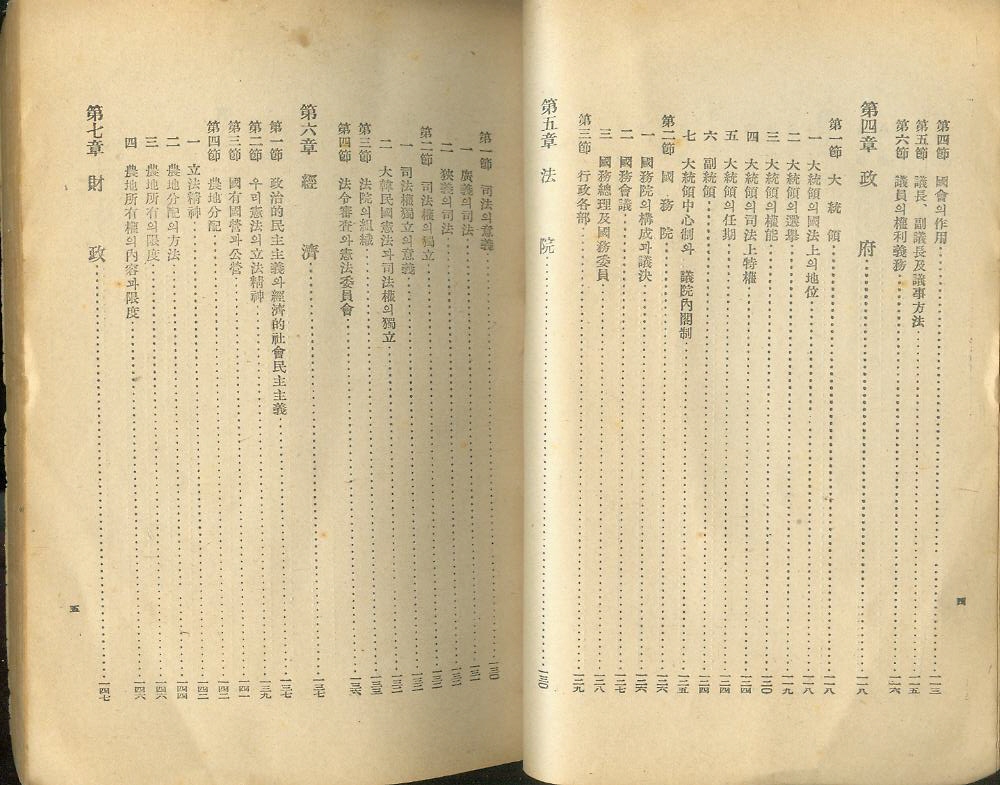 第四節 國會의作用 一一三
第五節 議長、副議長及議事方法 一一五
第六節 議員의權利義務 一一六
第四章 政府 一一八
第一節 大統領 一一八
一 大統領의國法上의地位 一一八
二 大統領의選擧 一一九
三 大統領의權能 一二〇
四 大統領의司法上特權 一二四
五 大統領의任期 一二四
六 副統領 一二四
七 大統領中心制와 議院內閣制 一二五
第二節 國務院 一二六
一 國務院의構成과議決 一二六
二 國務會議 一二七
三 國務總理及國務委員 一二八
第三節 行政各部 一二九
第五章 法院 一三〇
四
第一節 司法의意義 一三〇
一 廣義의司法 一三一
二 狹義의司法 一三一
第二節 司法權의獨立 一三二
一 司法權獨立의意義 一三二
二 大韓民國憲法과司法權의獨立 一三三
第三節 法院의組織 一三五
第四節 法令審査와憲法委員會 一三六
第六章 經濟 一三七
第一節 政治的民主主義와經濟的社會民主主義 一三七
第二節 우리憲法의立法精神 一三九
第三節 國有國營과公營 一四一
第四節 農地分配 一四二
一 立法精神 一四二
二 農地分配의方法 一四四
三 農地所有의限度 一四六
四 農地所有權의內容과限度 一四六
第七章 財政 一四七
五